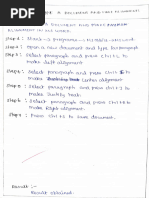 A DOCUMENT AND MAKE
ALIGNMENT IN MS WORD
Step 1 : Start → programs →
Step 2 : Open a new document and type few paragraph
Step 3 : Select paragraph and press ctrl + L to
make left alignment
Step 4 : Select paragraph and press ctrl E to
make center alignment
Step 5 : Select paragraph and press ctrl + J to
make Justify text.
Step 6 : Select paragraph and press ctrl + R to
make Right alignment.
Step 7 : Press ctrl + S to save document.
Result :-
Result obtained.